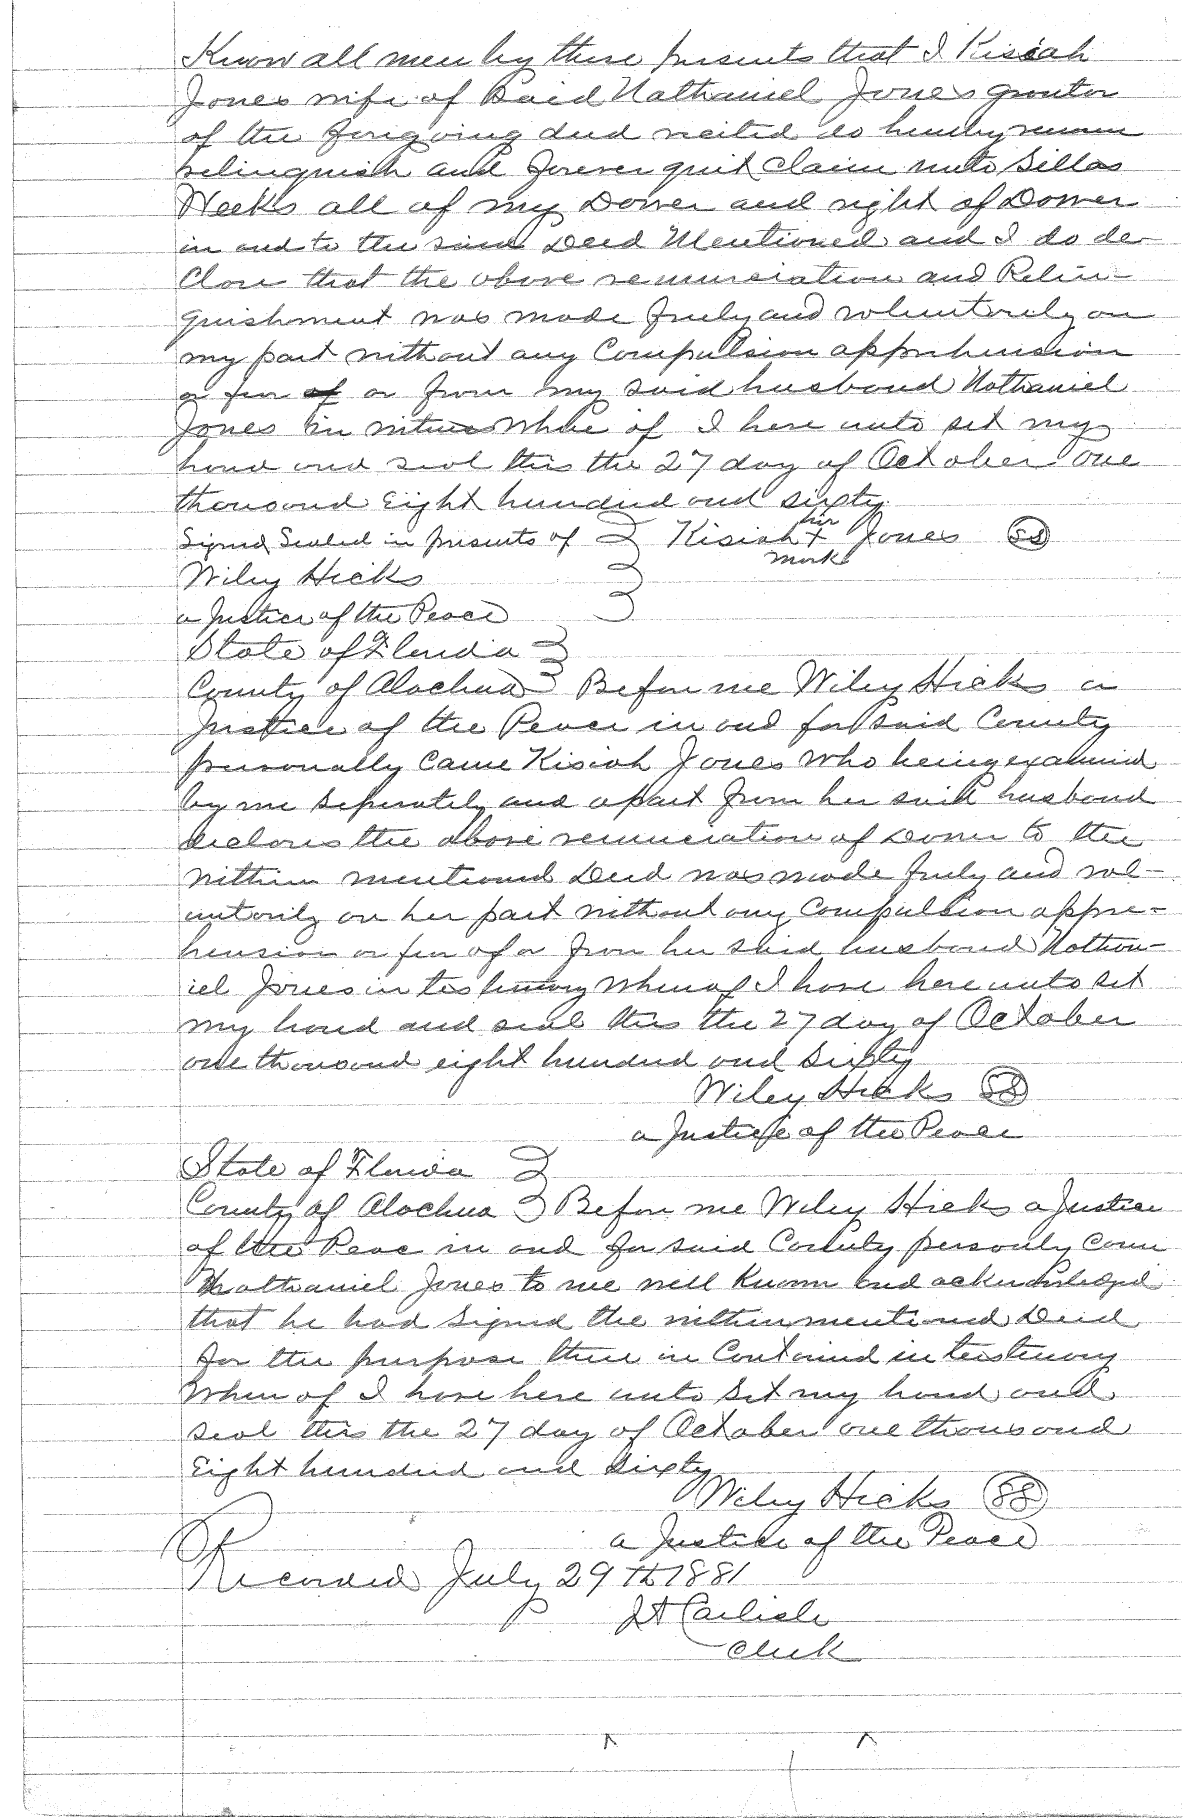 Know all men by these presents that I Kisiah
Jones wife of Said Nathaniel Jones grantor
of the foregoing deed recited do hereby renounce
relinquish and forever quit claim unto Sillas
Weeks all of my Dower and right of Dower
in and to the said Deed Mentioned and I do de-
Clare that the above renunciation and Relin-
quishment was made freely and voluntarily on
my part without any Compulsion apprehension
or fear of or from my said husband Nathaniel
Jones in witness where of I here unto set my
hand and seal this the 27 day of October one
thousand Eight hundred and sixty
Signed Sealed in presents of Kisiah her + mark Jones SS
Wiley Hicks
a Justice of the Peace
State of Florida
County of Alachua Before me Wiley Hicks a
Justice of the Peace in and for said County
personally Came Kisiah Jones who being examined
by me Seperately and apart from her said husband
declares the above renunciation of Dower to the
within mentioned Deed was made freely and vol-
untarily on her part without any Compulsion appre-
hension or fear of or from her said husband Nathan-
iel Jones in testimony whereof I have here unto set
my hand and seal this the 27 day of October
one thousand eight hundred and Sixty
Wiley Hicks SS
a Justice of the Peace
State of Florida
County of Alachua Before me Wiley Hicks a Justice
of the Peac in and for said County personly Came
Nathaniel Jones to me well Known and acknowledged
that he had Signed the within mentioned Deed
for the purpose there in Contained in testimony
Where of I have here unto Set my hand and
seal this the 27 day of October one thousand
Eight hundred and Sixty
Wiley Hicks SS
a Justice of the Peace
Recorded July 29th 1881
JA Carlisle
Clerk